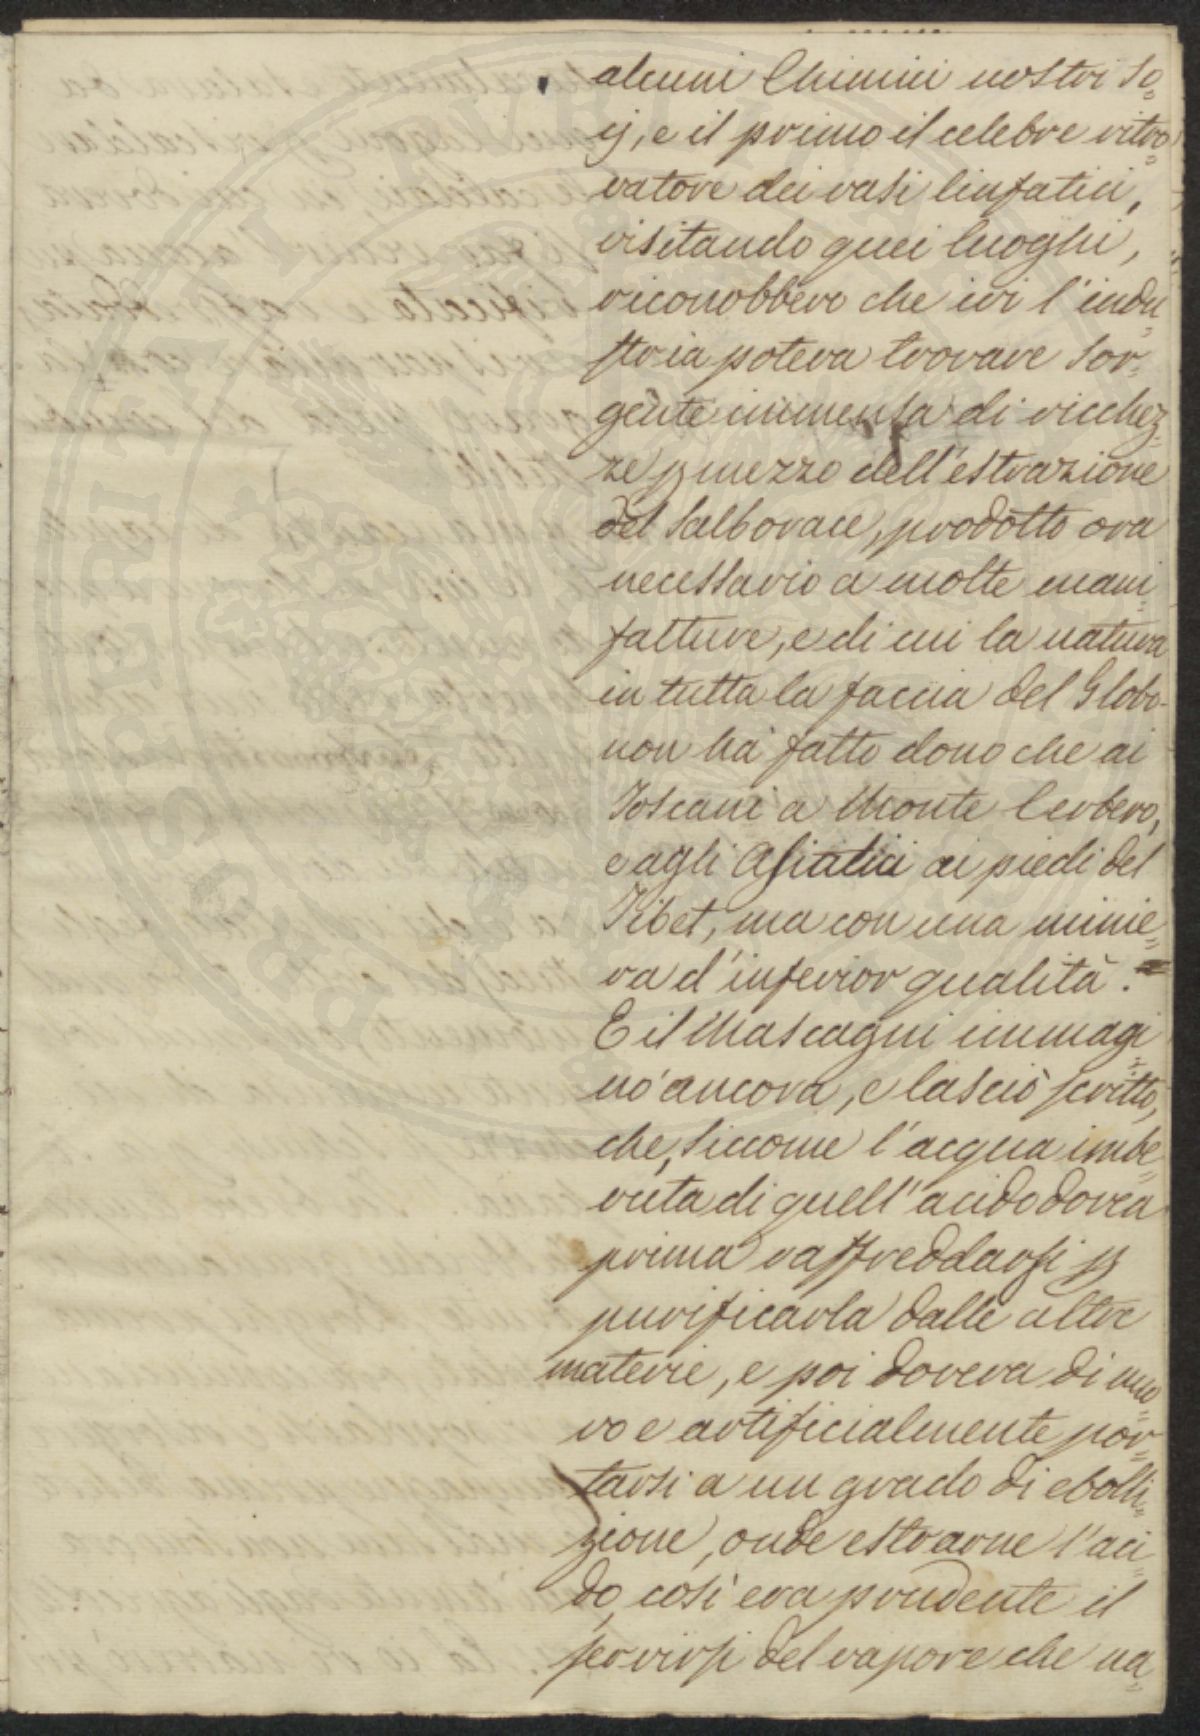 alcuni Chimici nostri So=
cj, e il primo il celebre ritro=
vatore dei vasi linfatici,
visitando quei luoghi,
riconobbero che ivi l'indu=
stria poteva trovare Sor=
gente immensa di ricchez=
ze p mezzo dell'estrazione
del Salborace, prodotto ora
necessario a molte mani=
fatture, e di cui la natura
in tutta la faccia del Globo
non ha fatto dono che ai
Toscani a Monte Cerbero,
e agli Asiatici ai piedi del
Tibet, ma con una minie=
ra d'inferior qualità.=
E il Mascagni immagi=
nò ancora, e lasciò scritto,
che, siccome l'acqua imbe=
vuta di quell'acido dovea
prima raffreddarsi p
purificarla dalle altre
materie, e poi doveva di nuo=
vo e artificialmente por=
tarsi a un grado di ebolli=
zione, onde estrarne l'aci=
do, così era prudente il
servirsi del vapore che na=
PROSPERITATI PVBLICAE